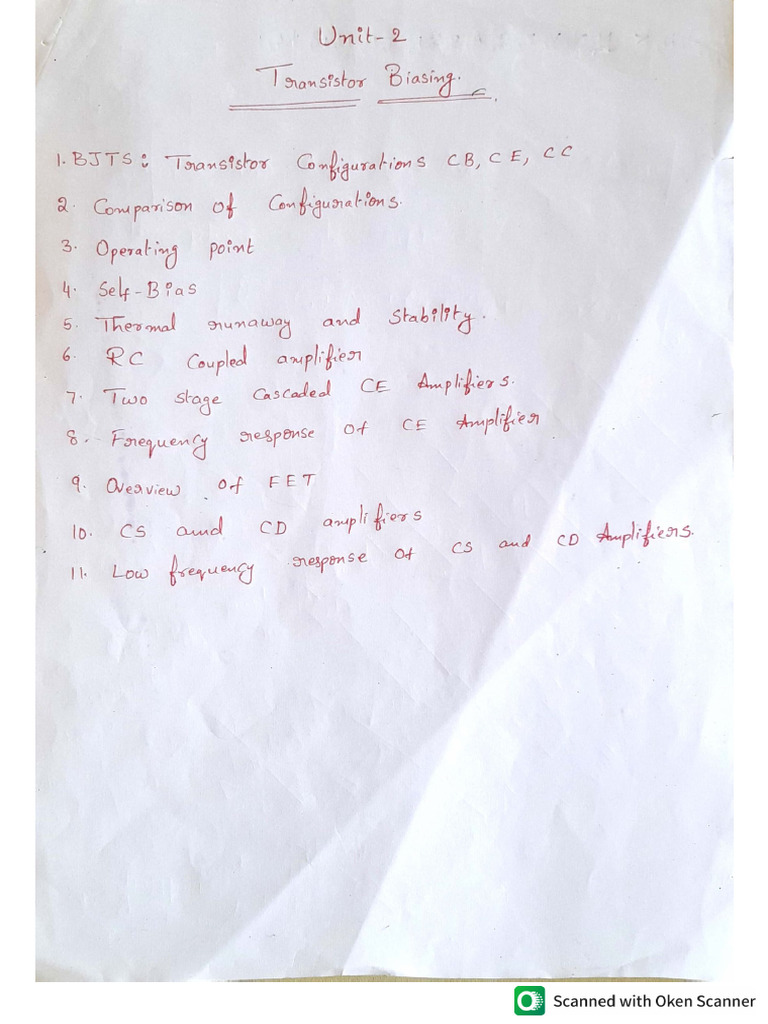 Unit-2
Transistor Biasing.
1. BJTS: Transistor Configurations CB, CE, CC
2. Comparison of Configurations.
3. Operating point
4. Self-Bias
5. Thermal runaway and Stability.
6. RC Coupled amplifier
7. Two stage Cascaded CE Amplifiers.
8. Frequency response of CE Amplifier
9. Overview of FET
10. CS and CD amplifiers
11. Low frequency response of CS and CD Amplifiers.
Scanned with Oken Scanner